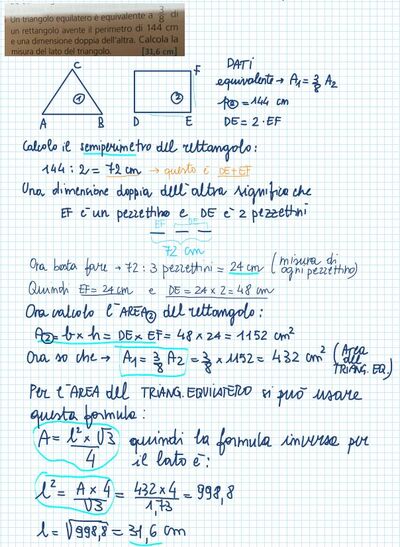 Un triangolo equilatero è equivalente a 3/8 di
un rettangolo avente il perimetro di 144 cm
e una dimensione doppia dell'altra. Calcola la
misura del lato del triangolo. [31,6 cm]
C
A B
1
F
D E
2
DATI
equivalente → A1 = 3/8 A2
= 144 cm
DE = 2 · EF
Calcolo il semiperimetro del rettangolo:
144 : 2 = 72 cm → questo è DE+EF
Una dimensione doppia dell'altra significa che
EF è un pezzettino e DE è 2 pezzettini
EF DE
72 cm
Ora basta fare → 72 : 3 pezzettini = 24 cm (misura di ogni pezzettino)
Quindi EF = 24 cm e DE = 24 x 2 = 48 cm
Ora calcolo l'AREA2 del rettangolo:
A2 = b x h = DE x EF = 48 x 24 = 1152 cm²
Ora so che → A1 = 3/8 A2 = 3/8 x 1152 = 432 cm² (Area del TRIANG. EQ.)
Per l'AREA del TRIANG. EQUILATERO si può usare
questa formula:
A = l² x √3 / 4 quindi la formula inversa per
il lato è:
l² = A x 4 / √3 = 432 x 4 / 1,73 = 998,8
l = √998,8 = 31,6 cm